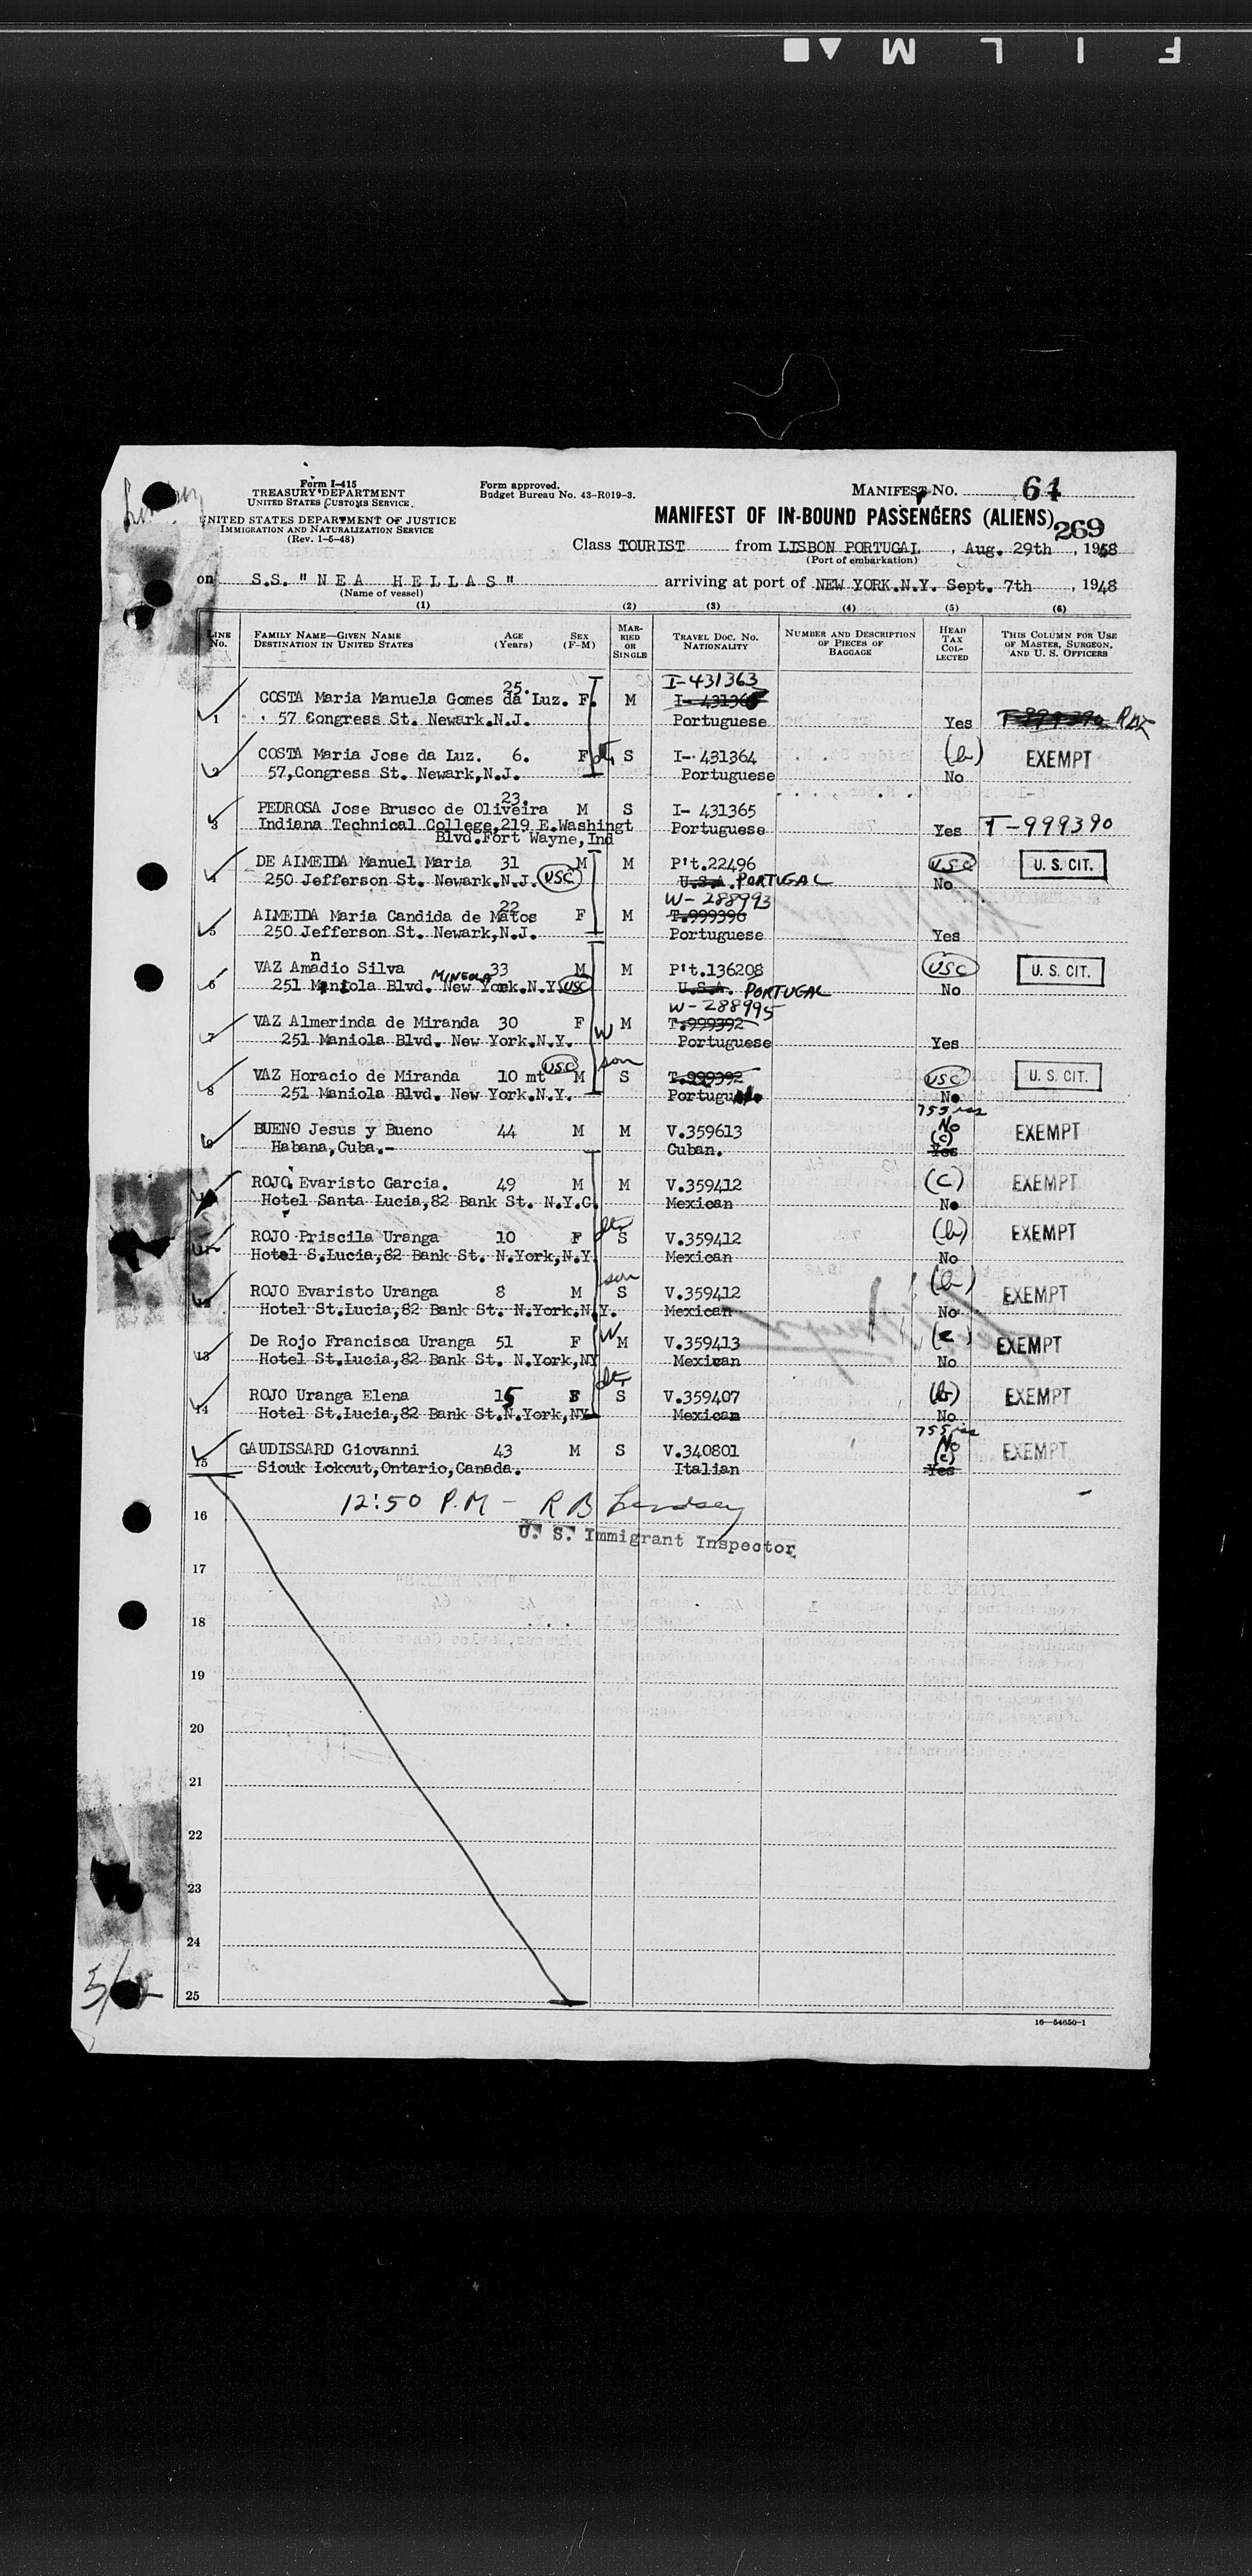 F I L M
Form I-415
TREASURY DEPARTMENT
UNITED STATES CUSTOMS SERVICE
UNITED STATES DEPARTMENT OF JUSTICE
IMMIGRATION AND NATURALIZATION SERVICE
(Rev. 1-5-48)
Form approved.
Budget Bureau No. 43-R019-3.
MANIFEST NO. 61
MANIFEST OF IN-BOUND PASSENGERS (ALIENS) 269
Class TOURIST from LISBON PORTUGAL, Aug. 29th, 1948
(Port of embarkation)
on S.S. "NEA HELLAS" arriving at port of NEW YORK.N.Y. Sept. 7th, 1948
(Name of vessel)
(1) (2) (3) (4) (5) (6)
LINE NO. FAMILY NAME—GIVEN NAME DESTINATION IN UNITED STATES AGE (Years) SEX (F-M) MARRIED OR SINGLE TRAVEL DOC. NO. NATIONALITY NUMBER AND DESCRIPTION OF PIECES OF BAGGAGE HEAD TAX COLLECTED THIS COLUMN FOR USE OF MASTER, SURGEON, AND U. S. OFFICERS
25. I-431363
1 COSTA Maria Manuela Gomes da Luz. F. M
57 Congress St. Newark.N.J. Portuguese Yes
2 COSTA Maria Jose da Luz. 6. F S I- 431364 (b) EXEMPT
57,Congress St. Newark,N.J. Portuguese No
23.
3 PEDROSA Jose Brusco de Oliveira M S I- 431365
Indiana Technical College,219 E.Washingt Portuguese Yes T-999390
Blvd.Fort Wayne,Ind
4 DE ALMEIDA Manuel Maria 31 M M P't.22496 USC U. S. CIT.
250 Jefferson St. Newark.N.J. USC U.S.A. PORTUGAL No
22 W-288993
5 ALMEIDA Maria Candida de Matos F M T.999396
250 Jefferson St. Newark,N.J. Portuguese Yes
n
6 VAZ Amadio Silva 33 M M P't.136208 USC U. S. CIT.
251 Maniola Blvd. MINEOLA New York.N.Y. USC U.S.A. PORTUGAL No
W-288995
7 VAZ Almerinda de Miranda 30 F W M T.999392
251 Maniola Blvd. New York.N.Y. Portuguese Yes
USC son
8 VAZ Horacio de Miranda 10 mt M S T.999392 USC U. S. CIT.
251 Maniola Blvd. New York.N.Y. No
9 BUENO Jesus y Bueno 44 M M V.359613 No (c) EXEMPT
Habana,Cuba.- Cuban. Yes
ROJO Evaristo Garcia. 49 M M V.359412 (c) EXEMPT
Hotel Santa Lucia,82 Bank St. N.Y.C. Mexican No
ROJO Priscila Uranga 10 F S V.359412 (b) EXEMPT
Hotel S.Lucia,82 Bank St. N.York,N.Y. Mexican No
son
12 ROJO Evaristo Uranga 8 M S V.359412 (b) EXEMPT
Hotel St.Lucia,82 Bank St. N.York.N.Y. Mexican No
13 De Rojo Francisca Uranga 51 F W M V.359413 (c) EXEMPT
Hotel St.Lucia,82 Bank St. N.York,NY Mexican No
14 ROJO Uranga Elena 15 F S V.359407 (b) EXEMPT
Hotel St.Lucia,82 Bank St.N.York,NY Mexican No
15 GAUDISSARD Giovanni 43 M S V.340801 No (c) EXEMPT
Siouk Lokout,Ontario,Canada. Italian Yes
12:50 P.M - R B Lindsey
16
U. S. Immigrant Inspector
17
18
19
20
21
22
23
24
25
16—54650-1